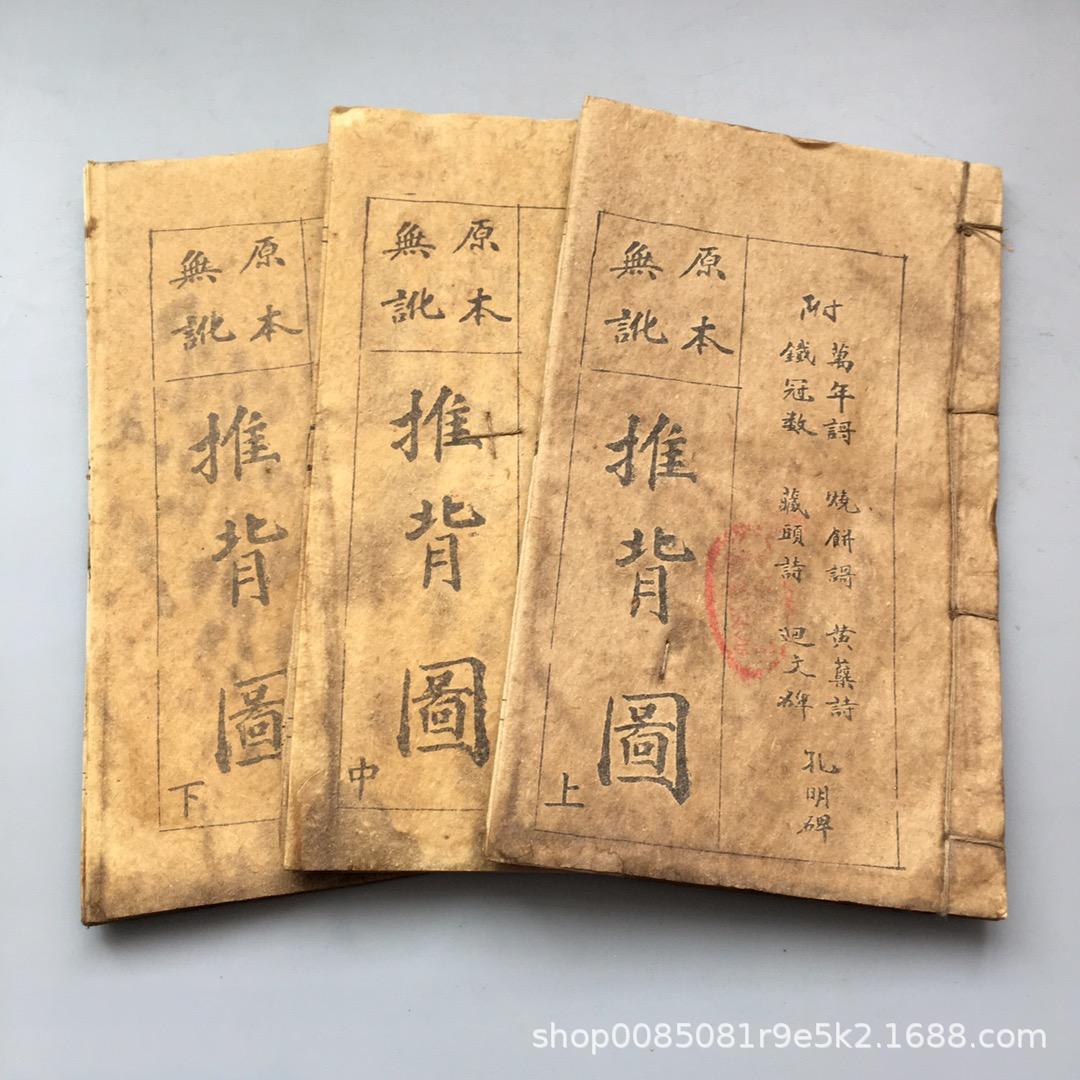 原本
無訛
推背圖
上
附
萬年謌 燒餅謌 黄蘗詩
鐵冠数 藏頭詩 迴文碑
孔明碑
原本
無訛
推背圖
中
原本
無訛
推背圖
下
shop0085081r9e5k2.1688.com